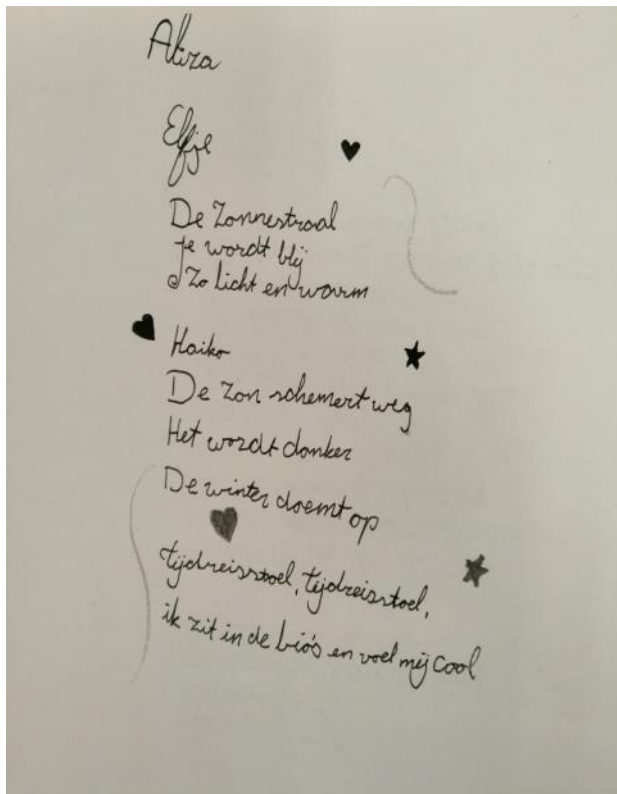 Aliza
Elfje
De Zonnestraal
je wordt blij
Zo licht en warm
Haiko
De zon schemert weg
Het wordt donker
De winter doemt op
tijdreisstoel, tijdreisstoel,
ik zit in de bio's en voel mij cool